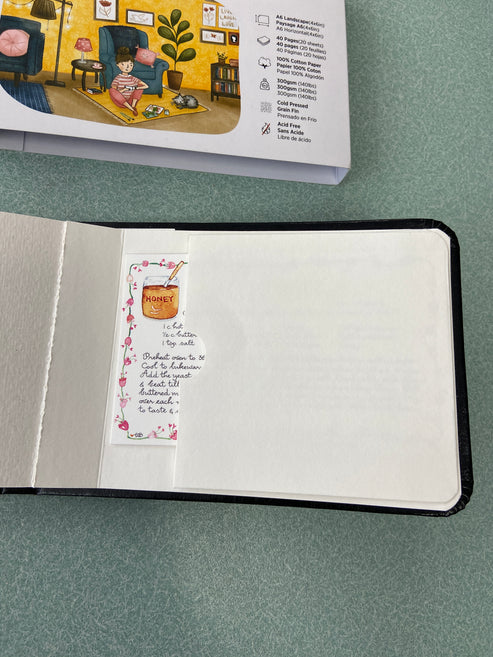 LIVE
LAUGH
LOVE
A6 Landscape(4x6in)
Paysage A6(4x6in)
A6 Horizontal(4x6in)
40 Pages(20 sheets)
40 pages (20 feuilles)
40 Páginas (20 hojas)
100% Cotton Paper
Papier 100% Coton
Papel 100% Algodón
300gsm (140lbs)
300gsm (140lbs)
300gsm (140lbs)
Cold Pressed
Grain Fin
Prensado en Frio
Acid Free
Sans Acide
Libre de ácido
HONEY
1 c hot
½ c butter
1 tsp salt
Preheat oven to 35
Cool to lukewar
Add the yeast
& beat till
buttered m
over each
to taste &